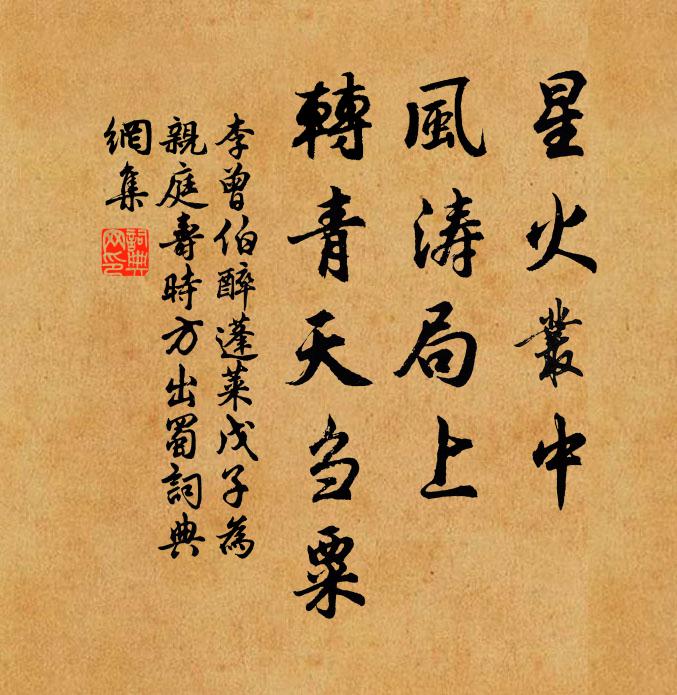 星火叢中
風涛局上
轉青天刍粟
李曾伯醉蓬萊戊子為
親庭壽時方出蜀詞典
網集
詞典網印